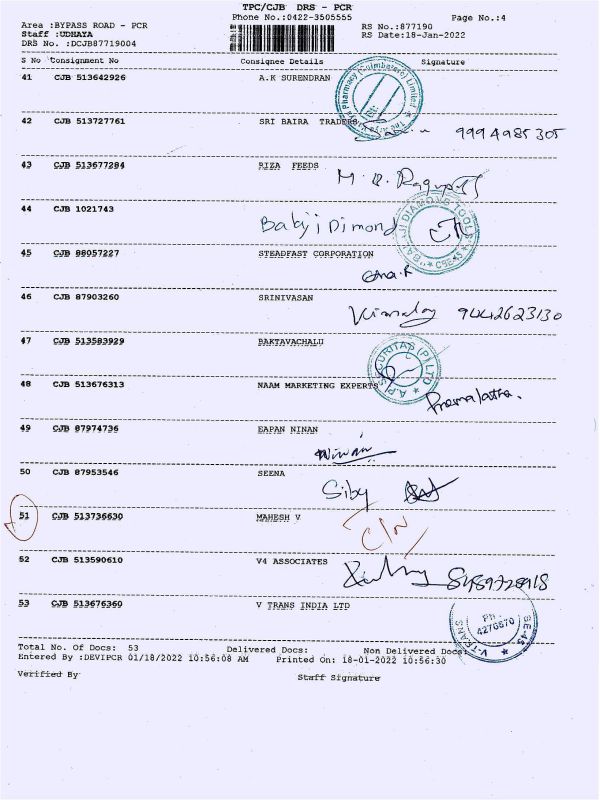 TPC/CJB DRS - PCR
Phone No.:0422-3505555 Page No.:4
Area :BYPASS ROAD - PCR RS No.:877190
Staff :UDHAYA RS Date:18-Jan-2022
DRS No. :DCJB87719004
S No Consignment No Consignee Details Signature
41 CJB 513642926 A.K SURENDRAN
Pharmacy (Coimbatore) Limited
42 CJB 513727761 SRI BAIRA TRADERS
9994985305
43 CJB 513677284 RIZA FEEDS
M.
44 CJB 1021743
Balaji Dimond
BALAJI DIAMOND TOOLS
CBE-45
45 CJB 88057227 STEADFAST CORPORATION
46 CJB 87903260 SRINIVASAN
9442623130
47 CJB 513583929 BAKTAVACHALU
SECURITAS (P) LTD
48 CJB 513676313 NAAM MARKETING EXPERTS
Premalatha.
49 CJB 87974736 EAPAN NINAN
Ninan
50 CJB 87953546 SEENA
Siby
51 CJB 513736630 MAHESH V
C/N
52 CJB 513590610 V4 ASSOCIATES
53 CJB 513676360 V TRANS INDIA LTD
PH:
4270870
V-TRANS
Total No. Of Docs: 53 Delivered Docs: Non Delivered Docs:
Entered By :DEVIPCR 01/18/2022 10:56:08 AM Printed On: 18-01-2022 10:56:30
Verified By Staff Signature